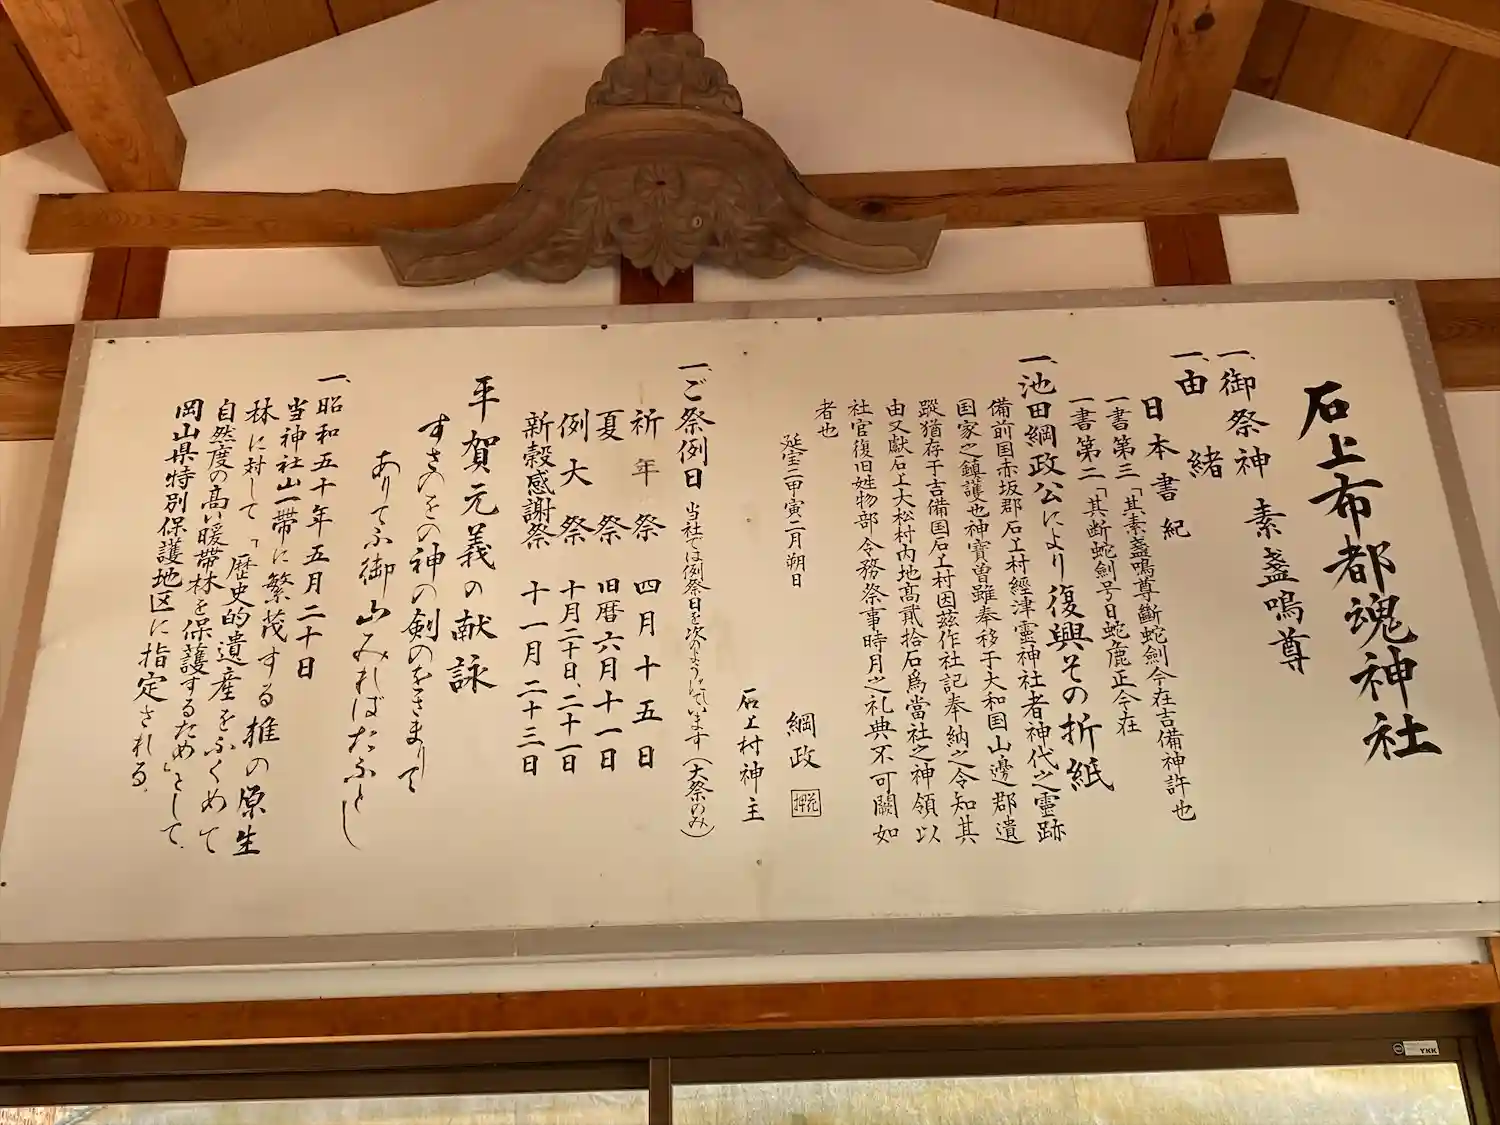 石上布都魂神社
一、御祭神 素盞嗚尊
一、由緒
日本書紀
一書第三「其素盞嗚尊斷蛇劍今在吉備神許也
一書第二「其断蛇劍号曰蛇之麁正今在
一、池田綱政公により復興その折紙
備前国赤坂郡石上村經津霊神社者神代之霊跡
国家之鎮護也神寶曽雖奉移于大和国山邊郡遺
蹤猶存于吉備国石上村因茲作社記奉納之令知其
由又獻石上大松村内地髙貳拾石爲當社之神領以
社官復旧姓物部令務祭事時月之礼典不可闕如
者也
延宝二甲寅二月朔日 綱政 花押
石上村神主
一、ご祭例日 当社では例祭日を次のようにしています(大祭のみ)
祈年祭 四月十五日
夏祭 旧暦六月十一日
例大祭 十月二十日、二十一日
新穀感謝祭 十一月二十三日
平賀元義の献詠
すさのをの神の剣のをさまりて
ありてふ御山みればたふとし
一、昭和五十年五月二十日
当神社山一帯に繁茂する椎の原生
林に対して「歴史的遺産をふくめて
自然度の高い暖帯林を保護するため」として、
岡山県特別保護地区に指定される。
YKK